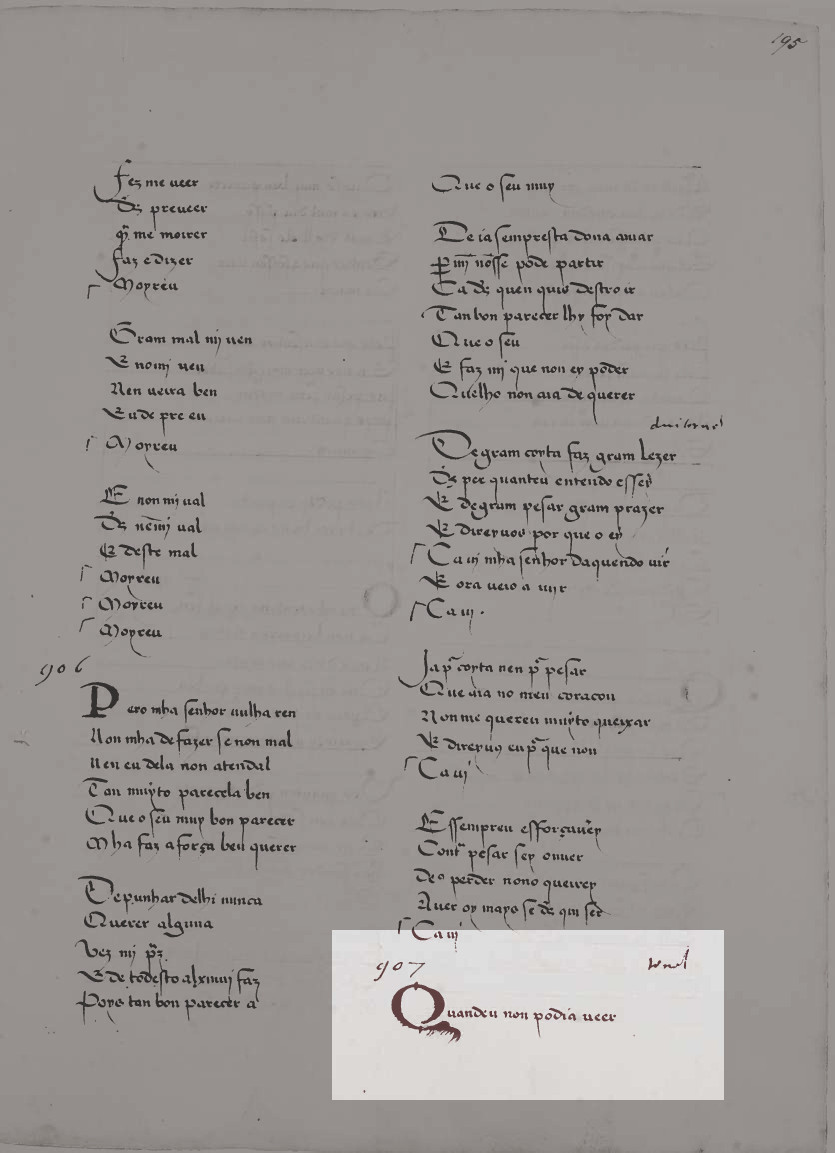 195
fez me ueer
ds preueer
q̄ me moirer
faz e dizer
Moyreu
Gram mal mj uen
E nomj uen
Nen ueira ben
E u de pre eu
Moyreu
E non mj ual
Ds nẽmj ual
E deste mal
Moyreu
Moyreu
Moyreu
906
Pero mha senhor nulha ren
Non mha de fazer se non mal
Nen eu dela non atendal
Tan muyto parecela ben
Que o seu muy bon parecer
Mha faz a força ben querer
De punhar delhi nunca
Querer alguna
Vez mj
E de todesto alxmuj faz
Poys tan bon parecer a
Que o seu muy
De ia sempresta dona amar
nõsse pode partir
Ca ds quen quis destroir
Tan bon parecer lhy foy dar
Que o seu
E faz mj que non ey poder
Quelho non aia de querer
De gram coyta faz gram lezer
Ds per quanteu entendo
E de gram pesar gram prazer
E direyuos por que o ey
Ca uj mha senhor daquendo uir
E ora ueio a
Ca uj .
Ja pᵃ coyta nen pᵃ pesar
Que aia no meu coraçon
Non me quereu muyto queixar
E direyuꝯ eu pᵃ que non
Ca uj
E ssempreu
Contᵃ pesar sey
De o perder nono querrey
Auer oy mays se ds
Ca uj
907 tornel
Quandeu non podia ueer